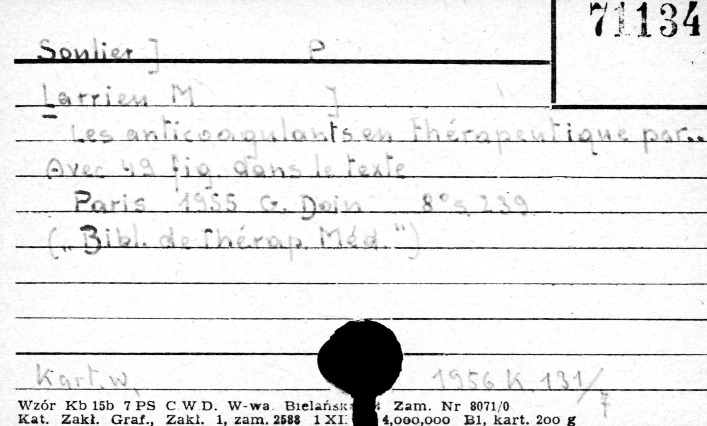 71134
Soulier] P
Larrieu M ]
Les anticoagulants en thérapeutique par..
Avec 49 fig. dans le texte
Paris 1955 G. Doin 8° s. 239.
("Bibl. de thérap. Méd.")
Kart. w. 1956 K. 131/7
Wzór Kb 15b 7 PS C.W.D. W-wa Bielańska Zam. Nr 8071/0
Kat. Zakł. Graf., Zakł. 1, zam. 2588 1 XII 4,000,000 B1, kart. 200 g